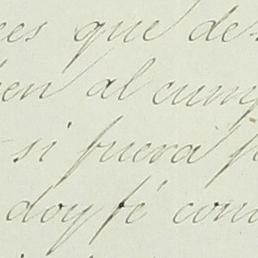 que de
en al cump
si fuera p
doy fé com